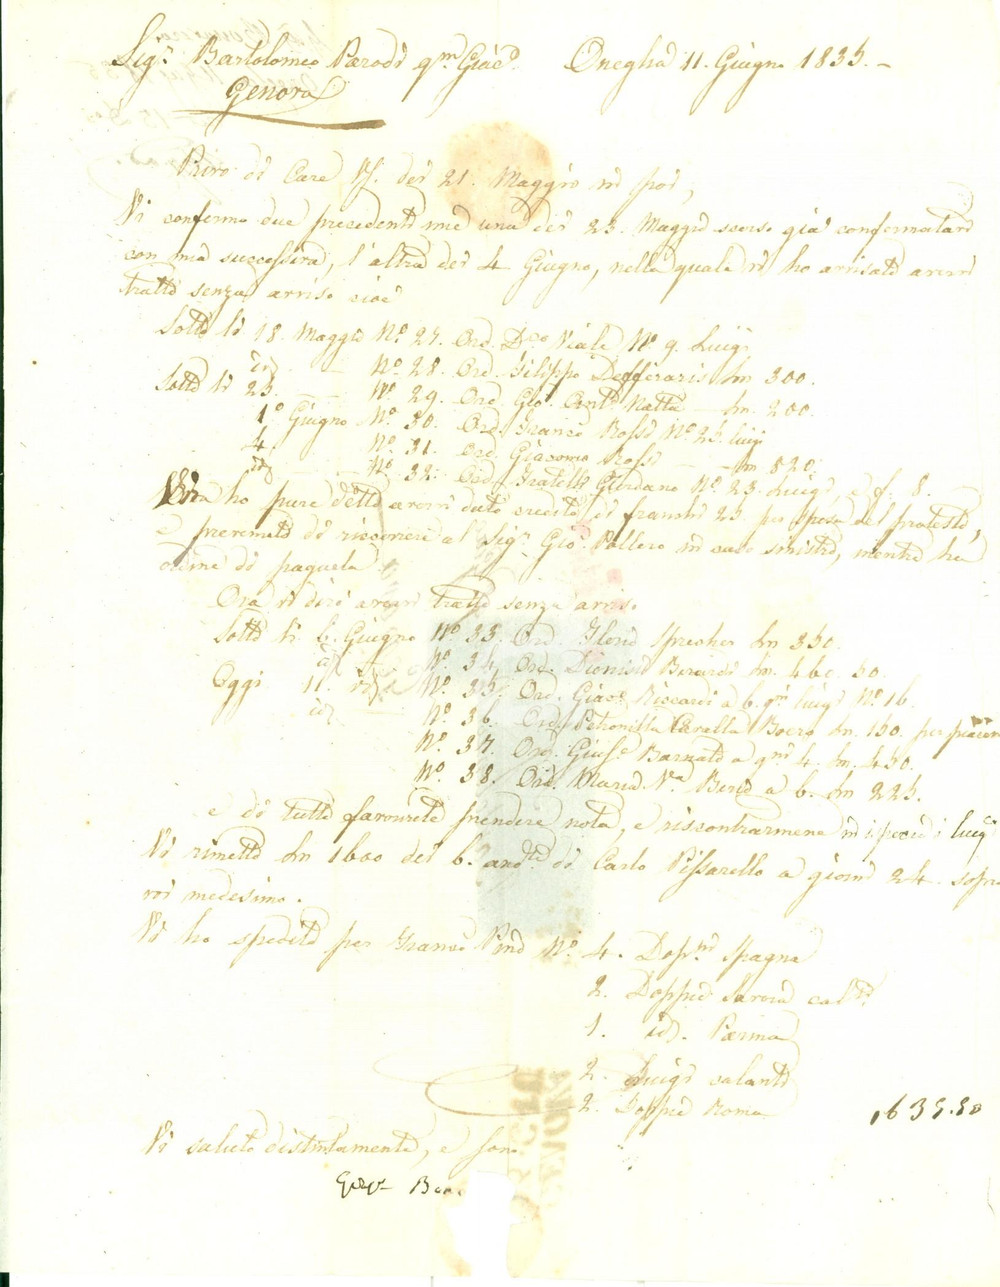 Sigr Bartolomeo Parodi qm Giaco Oneglia 11. Giugno 1835.
Genova
Privo di Care Vs. dei 21. Maggio
Vi confermo due precedenti mie una dei 23. Maggio scorso già confermatavi
con mia successiva, l'altra dei 4 Giugno, nella quale vi ho avvisato avervi
tratto senza avviso cioè
Sotto li 18. Maggio No 27. Ord. Dco Viale No 9. Luigi
id No 28. Ord. Filippo Defferari Ln 300.
Sotto li 23 No 29. Ord. Gio. Anto Natta Ln. 200.
1o Giugno No 30. Ord. Franco Rossi No 25 luigi
4. No 31. Ord. Giacomo Rossi Ln 820.
id No 32. Ord. Fratelli Giordano No 23. Luigi, e f. 8.
Vi ho pure detto avervi dato credito di franchi 23 per spese del protesto,
e di ricorrere al Sigr Gio. Pollero in caso sinistro, mentre ha
ordine di pagarla.
Ora vi dirò avervi tratto senza avviso
Sotto li 6. Giugno No 33. Ord. Ln 350.
id No 34. Ord. Dionisio Berardi Ln. 460. 50.
Oggi 11. id No 35. Ord. Giaco Riccardi a 6. gni luigi No 16.
id No 36. Ord. Petronilla Boero Ln. 150. per
No 37. Ord. Giuse Barnato a gni 4. Ln. 450.
No 38. Ord. Maria Va a 6. Ln 225.
e di tutto favorite prendere nota, e riscontrarmene
Vi rimetto Ln 1600 del 6. andte di Carlo Pissarello a giorni 24. sopra
voi medesimo.
Vi ho spedito per Franco Pino No 4. Dopni Spagna
2. Doppie Savoia
1. id. Parma
2. Luigi calanti
2. Doppie Roma 1635.50
Vi saluto distintamente, e sono